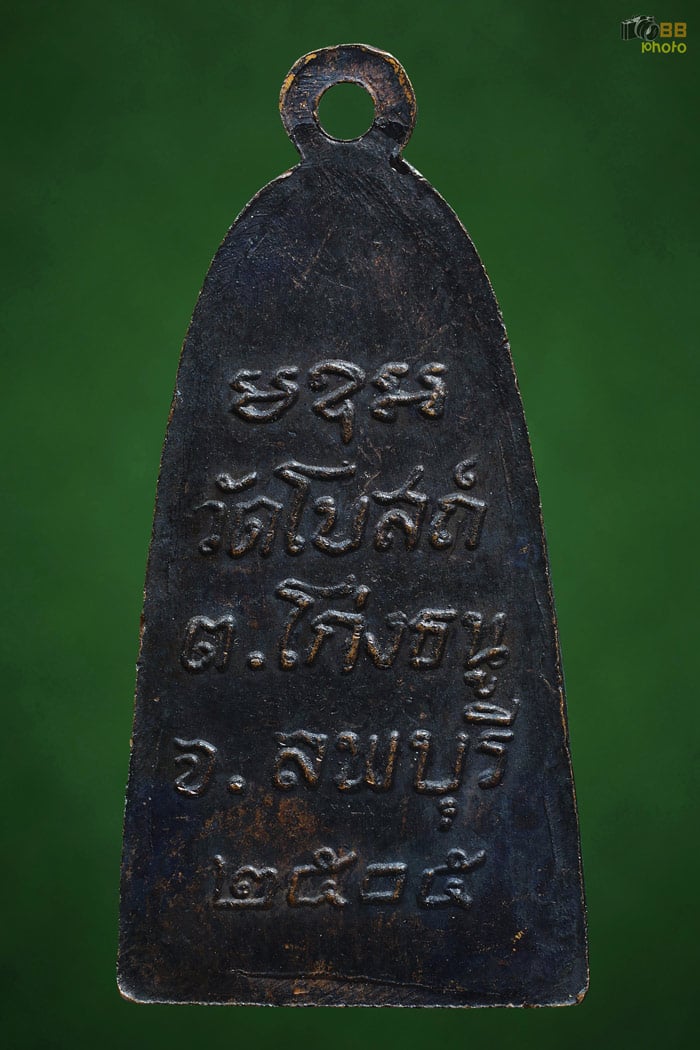 BB
photo
วัดโบสถ์
ต.โก่งธนู
จ.ลพบุรี
๒๕๐๕